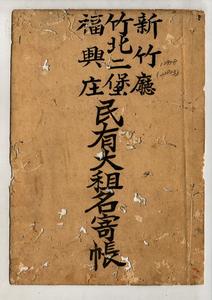 新竹廳
竹北二堡
福興庄
民有大租名寄帳